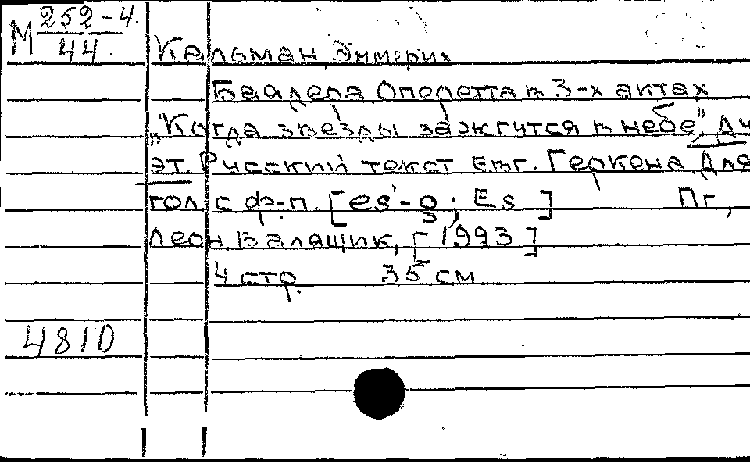 М 252-4.
44.
Кальман, Эммерих
Баядера Оперетта в 3-х актах
„Когда звезды зажгутся в небе", Ду
эт. Русский текст Евг. Геркена Для
гол. с ф-п. [es'-g; Es]   Пг,
Леон. Валящик, [1923]
4 стр.   35 см
4810